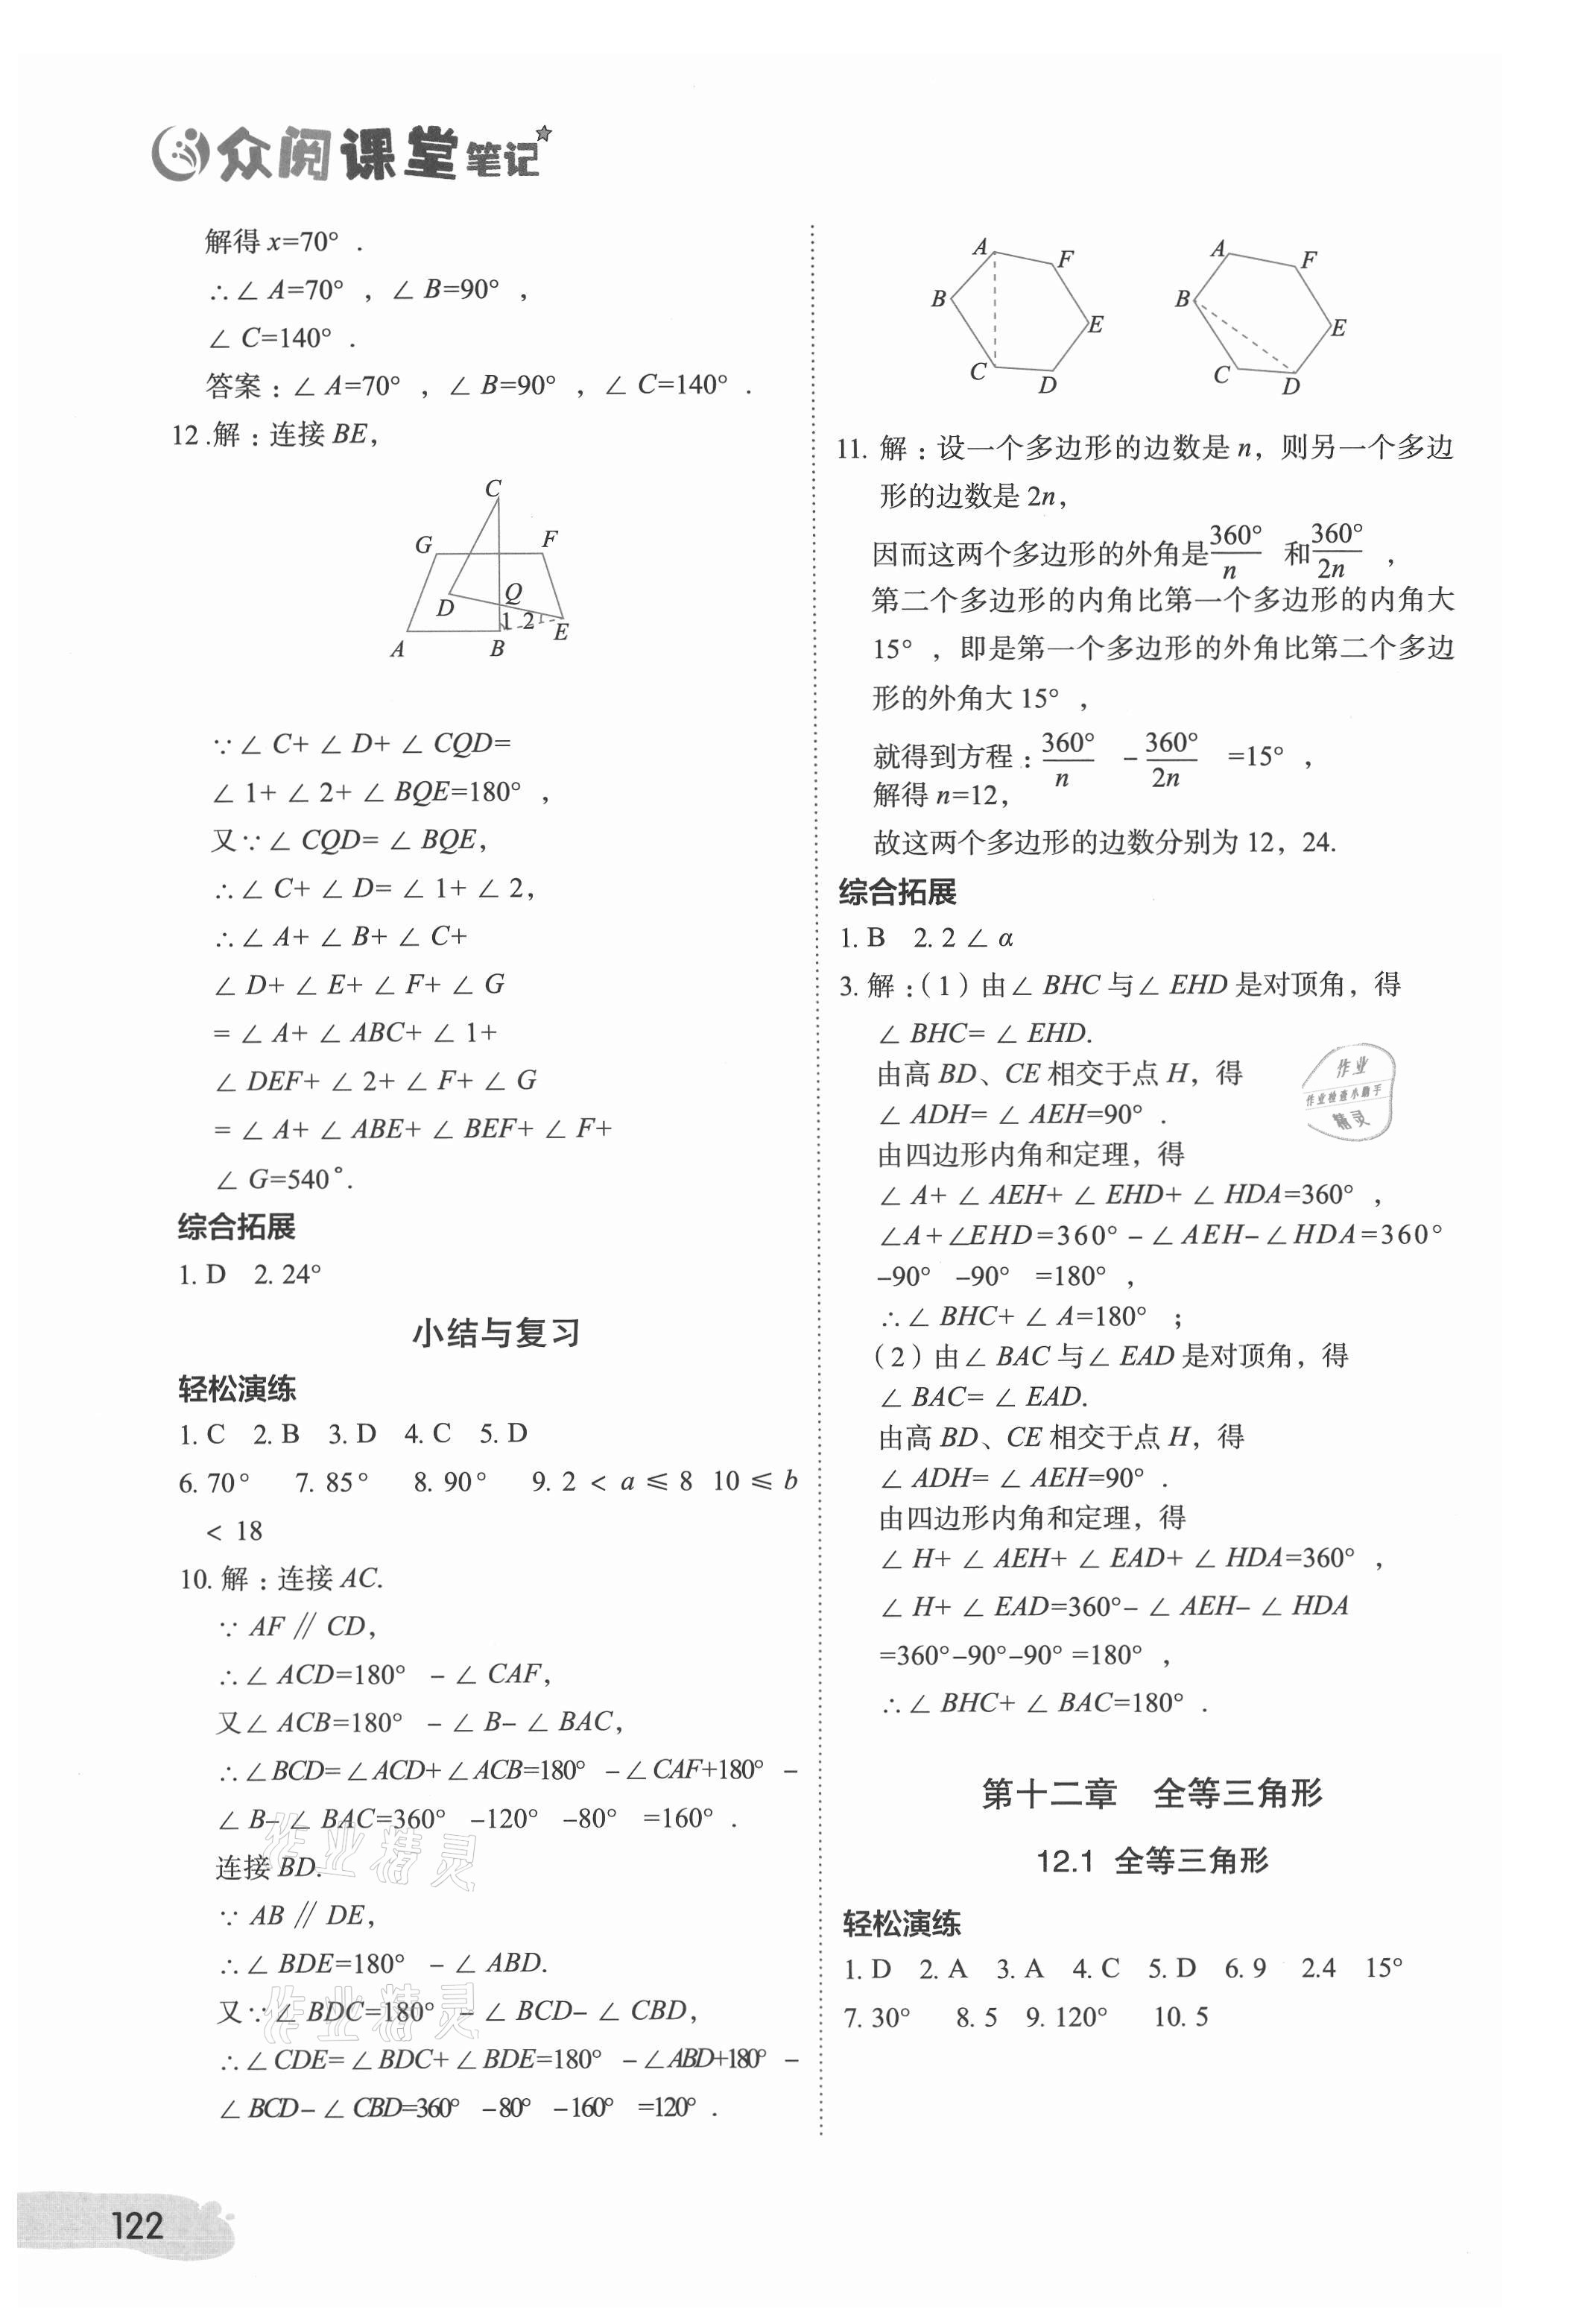 众阅课堂笔记
解得 x=70° .
∴∠ A=70° , ∠ B=90° ,
∠ C=140° .
答案：∠ A=70° , ∠ B=90° , ∠ C=140° .
12 .解：连接 BE,
C
G
F
D
Q
1 2
E
A
B
∵∠ C+ ∠ D+ ∠ CQD=
∠ 1+ ∠ 2+ ∠ BQE=180° ,
又∵∠ CQD= ∠ BQE,
∴∠ C+ ∠ D= ∠ 1+ ∠ 2,
∴∠ A+ ∠ B+ ∠ C+
∠ D+ ∠ E+ ∠ F+ ∠ G
= ∠ A+ ∠ ABC+ ∠ 1+
∠ DEF+ ∠ 2+ ∠ F+ ∠ G
= ∠ A+ ∠ ABE+ ∠ BEF+ ∠ F+
∠ G=540°.
综合拓展
1. D 2. 24°
小结与复习
轻松演练
1. C 2. B 3. D 4. C 5. D
6. 70° 7. 85° 8. 90° 9. 2 < a ≤ 8 10 ≤ b
< 18
10. 解：连接 AC.
∵ AF ∥ CD,
∴∠ ACD=180° – ∠ CAF,
又∠ ACB=180° – ∠ B– ∠ BAC,
∴∠ BCD= ∠ ACD+ ∠ ACB=180° – ∠ CAF+180° –
∠ B– ∠ BAC=360° –120° –80° =160° .
连接 BD.
∵ AB ∥ DE,
∴∠ BDE=180° – ∠ ABD.
又∵∠ BDC=180° – ∠ BCD– ∠ CBD,
∴∠ CDE= ∠ BDC+ ∠ BDE=180° – ∠ ABD+180° –
∠ BCD– ∠ CBD=360° –80° –160° =120° .
作业精灵
作业精灵
122
A
F
B
E
C
D
A
F
B
E
C
D
11. 解：设一个多边形的边数是 n, 则另一个多边
形的边数是 2n,
因而这两个多边形的外角是 360°/n 和 360°/2n ,
第二个多边形的内角比第一个多边形的内角大
15° , 即是第一个多边形的外角比第二个多边
形的外角大 15° ,
就得到方程：360°/n – 360°/2n =15° ,
解得 n=12,
故这两个多边形的边数分别为 12, 24.
综合拓展
1. B 2. 2 ∠ α
3. 解：（1）由∠ BHC 与∠ EHD 是对顶角, 得
∠ BHC= ∠ EHD.
由高 BD、CE 相交于点 H, 得
∠ ADH= ∠ AEH=90° .
由四边形内角和定理, 得
∠ A+ ∠ AEH+ ∠ EHD+ ∠ HDA=360° ,
∠A+∠EHD=360° – ∠ AEH– ∠ HDA=360°
–90° –90° =180° ,
∴∠ BHC+ ∠ A=180° ；
（2）由∠ BAC 与∠ EAD 是对顶角, 得
∠ BAC= ∠ EAD.
由高 BD、CE 相交于点 H, 得
∠ ADH= ∠ AEH=90° .
由四边形内角和定理, 得
∠ H+ ∠ AEH+ ∠ EAD+ ∠ HDA=360° ,
∠ H+ ∠ EAD=360°– ∠ AEH– ∠ HDA
=360°–90°–90° =180° ,
∴∠ BHC+ ∠ BAC=180° .
作业
作业检查小助手
精灵
第十二章 全等三角形
12.1 全等三角形
轻松演练
1. D 2. A 3. A 4. C 5. D 6. 9 2.4 15°
7. 30° 8. 5 9. 120° 10. 5